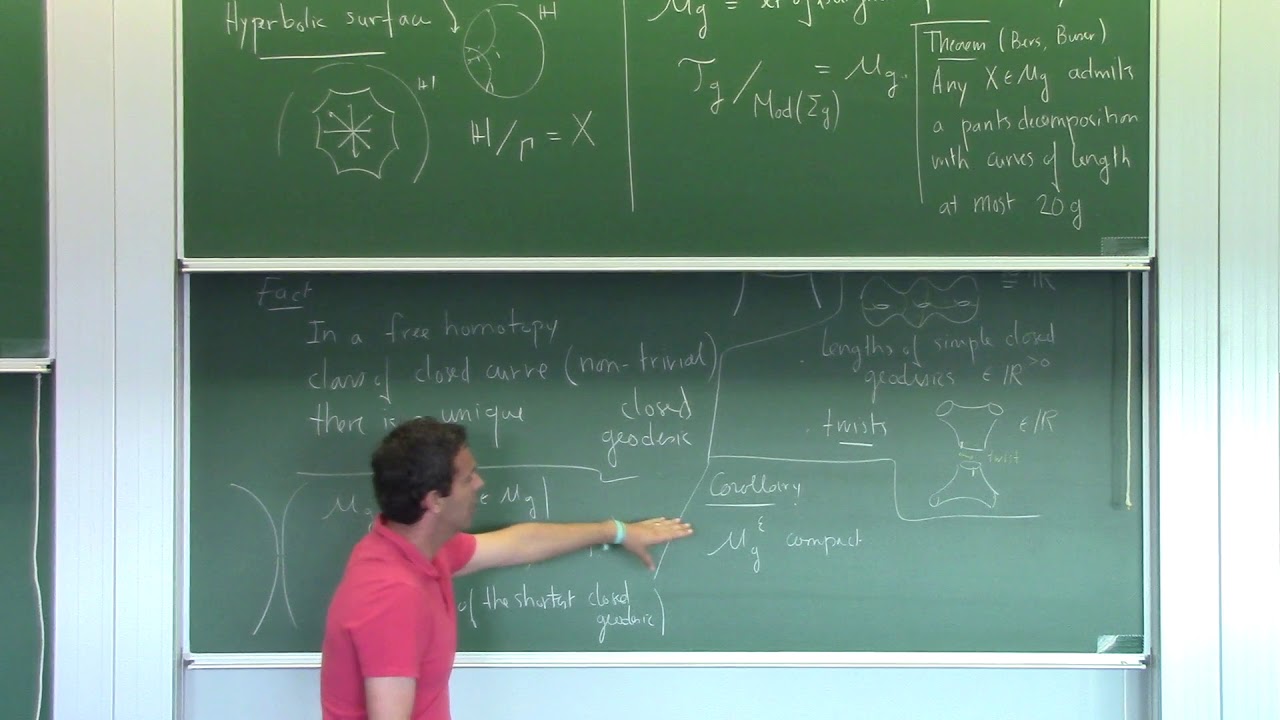 Hyperbolic surface
ℍ
ℍ
ℍ/Γ = X
M_g =
T_g / Mod(Σ_g) = M_g.
Theorem (Bers, Buser)
Any X ∈ M_g admits
a pants decomposition
with curves of length
at most 20 g
Fact
In a free homotopy
class of closed curve (non-trivial)
there is a unique closed
geodesic
∈ M_g |
of the shortest closed
geodesic
≅ ℝ
. lengths of simple closed
geodesics ∈ ℝ^{>0}
. twists
∈ ℝ
twist
Corollary
M_g^ε compact